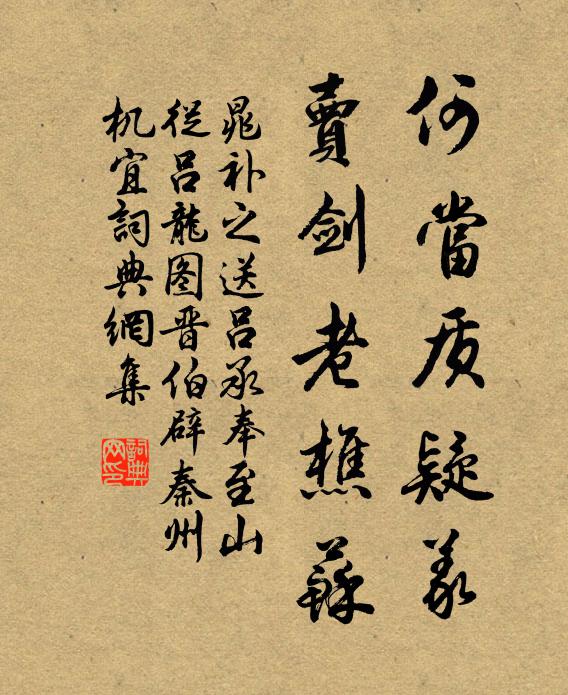 何當质疑義
賣劍老樵蘇
晁补之送吕承奉至山
從吕龍图晋伯辟秦州
机宜詞典網集
詞典
网印